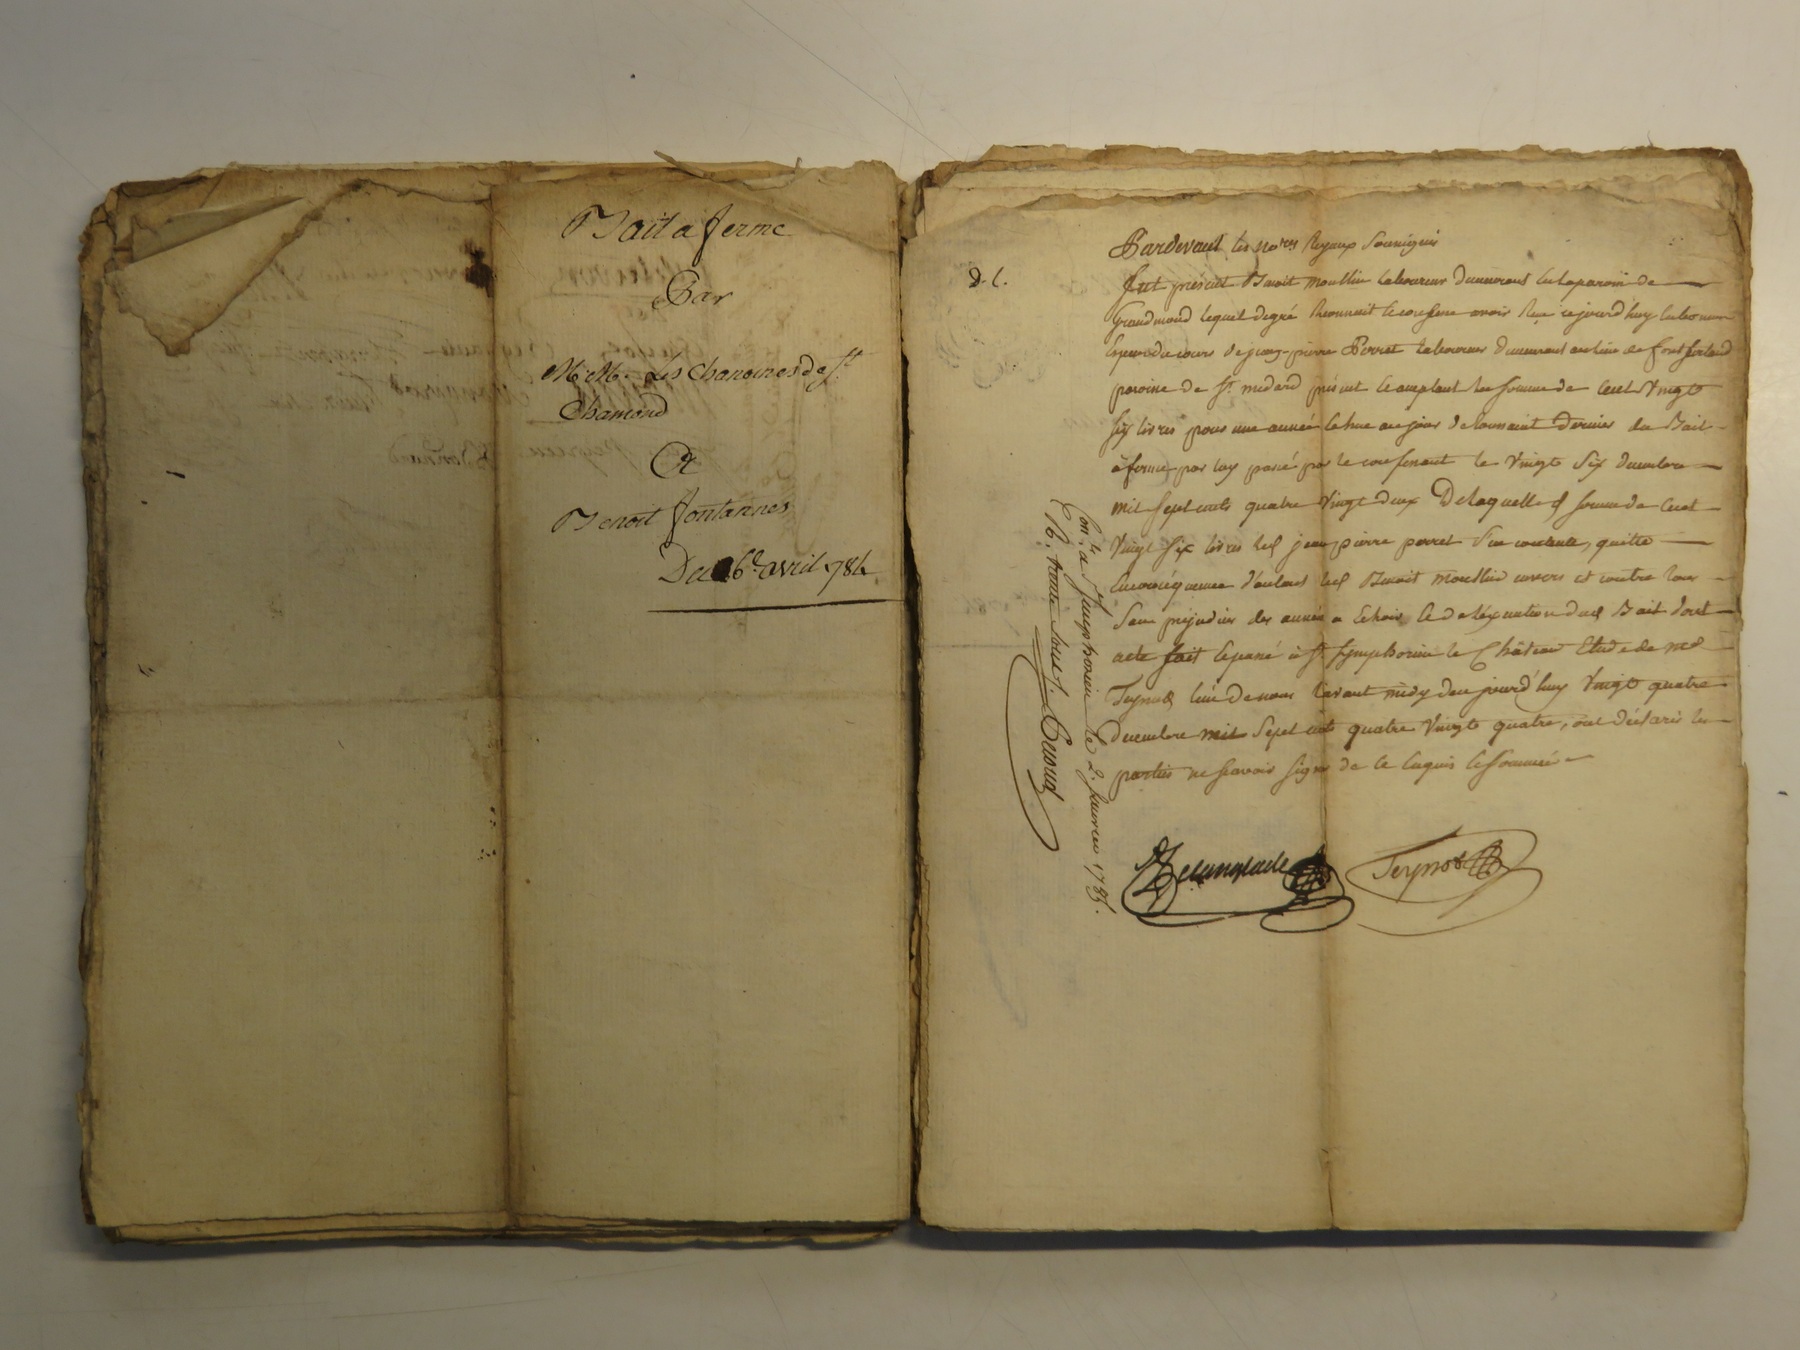 Bail a ferme
Par
M.M. Les Chanoines de St
Chamond
A
Benoit fontannes
Du 6e avril 784
D. C.
Pardevant les nores Royaux Soussignés
fut présent Benoit moullin laboureur demeurant en la paroisse de
Grandmond lequel de gré Reconnoit et confesse avoir Reçu cejourd'huy
de jean-pierre Perret laboureur demeurant au lieu de
paroisse de St medard présent et acceptant la somme de Cent Vingt
Six livres pour une année échue au jour de toussaint Dernier du Bail
à ferme par luy passé par le confessant le Vingt Six décembre
mil Sept cents quatre Vingt deux De laquelle somme de Cent
Vingt Six livres led jean pierre perret contente, quitte
led Benoit moullin envers et contre tous
Sans préjudice des années a Echoir et de l'éxécution dud Bail dont
acte fait et passé à St Symphorien le Château Etude de me
Teynod l'un de nous avant midy de jourd'huy Vingt quatre
décembre mil Sept cents quatre Vingt quatre, ont déclaré les
parties ne scavoir signer de ce Enquis et Sommés
Delanglade Teynod
Con.lé a St Simphorien le 2. janvier 1785.
R. trente sous. Cenoud